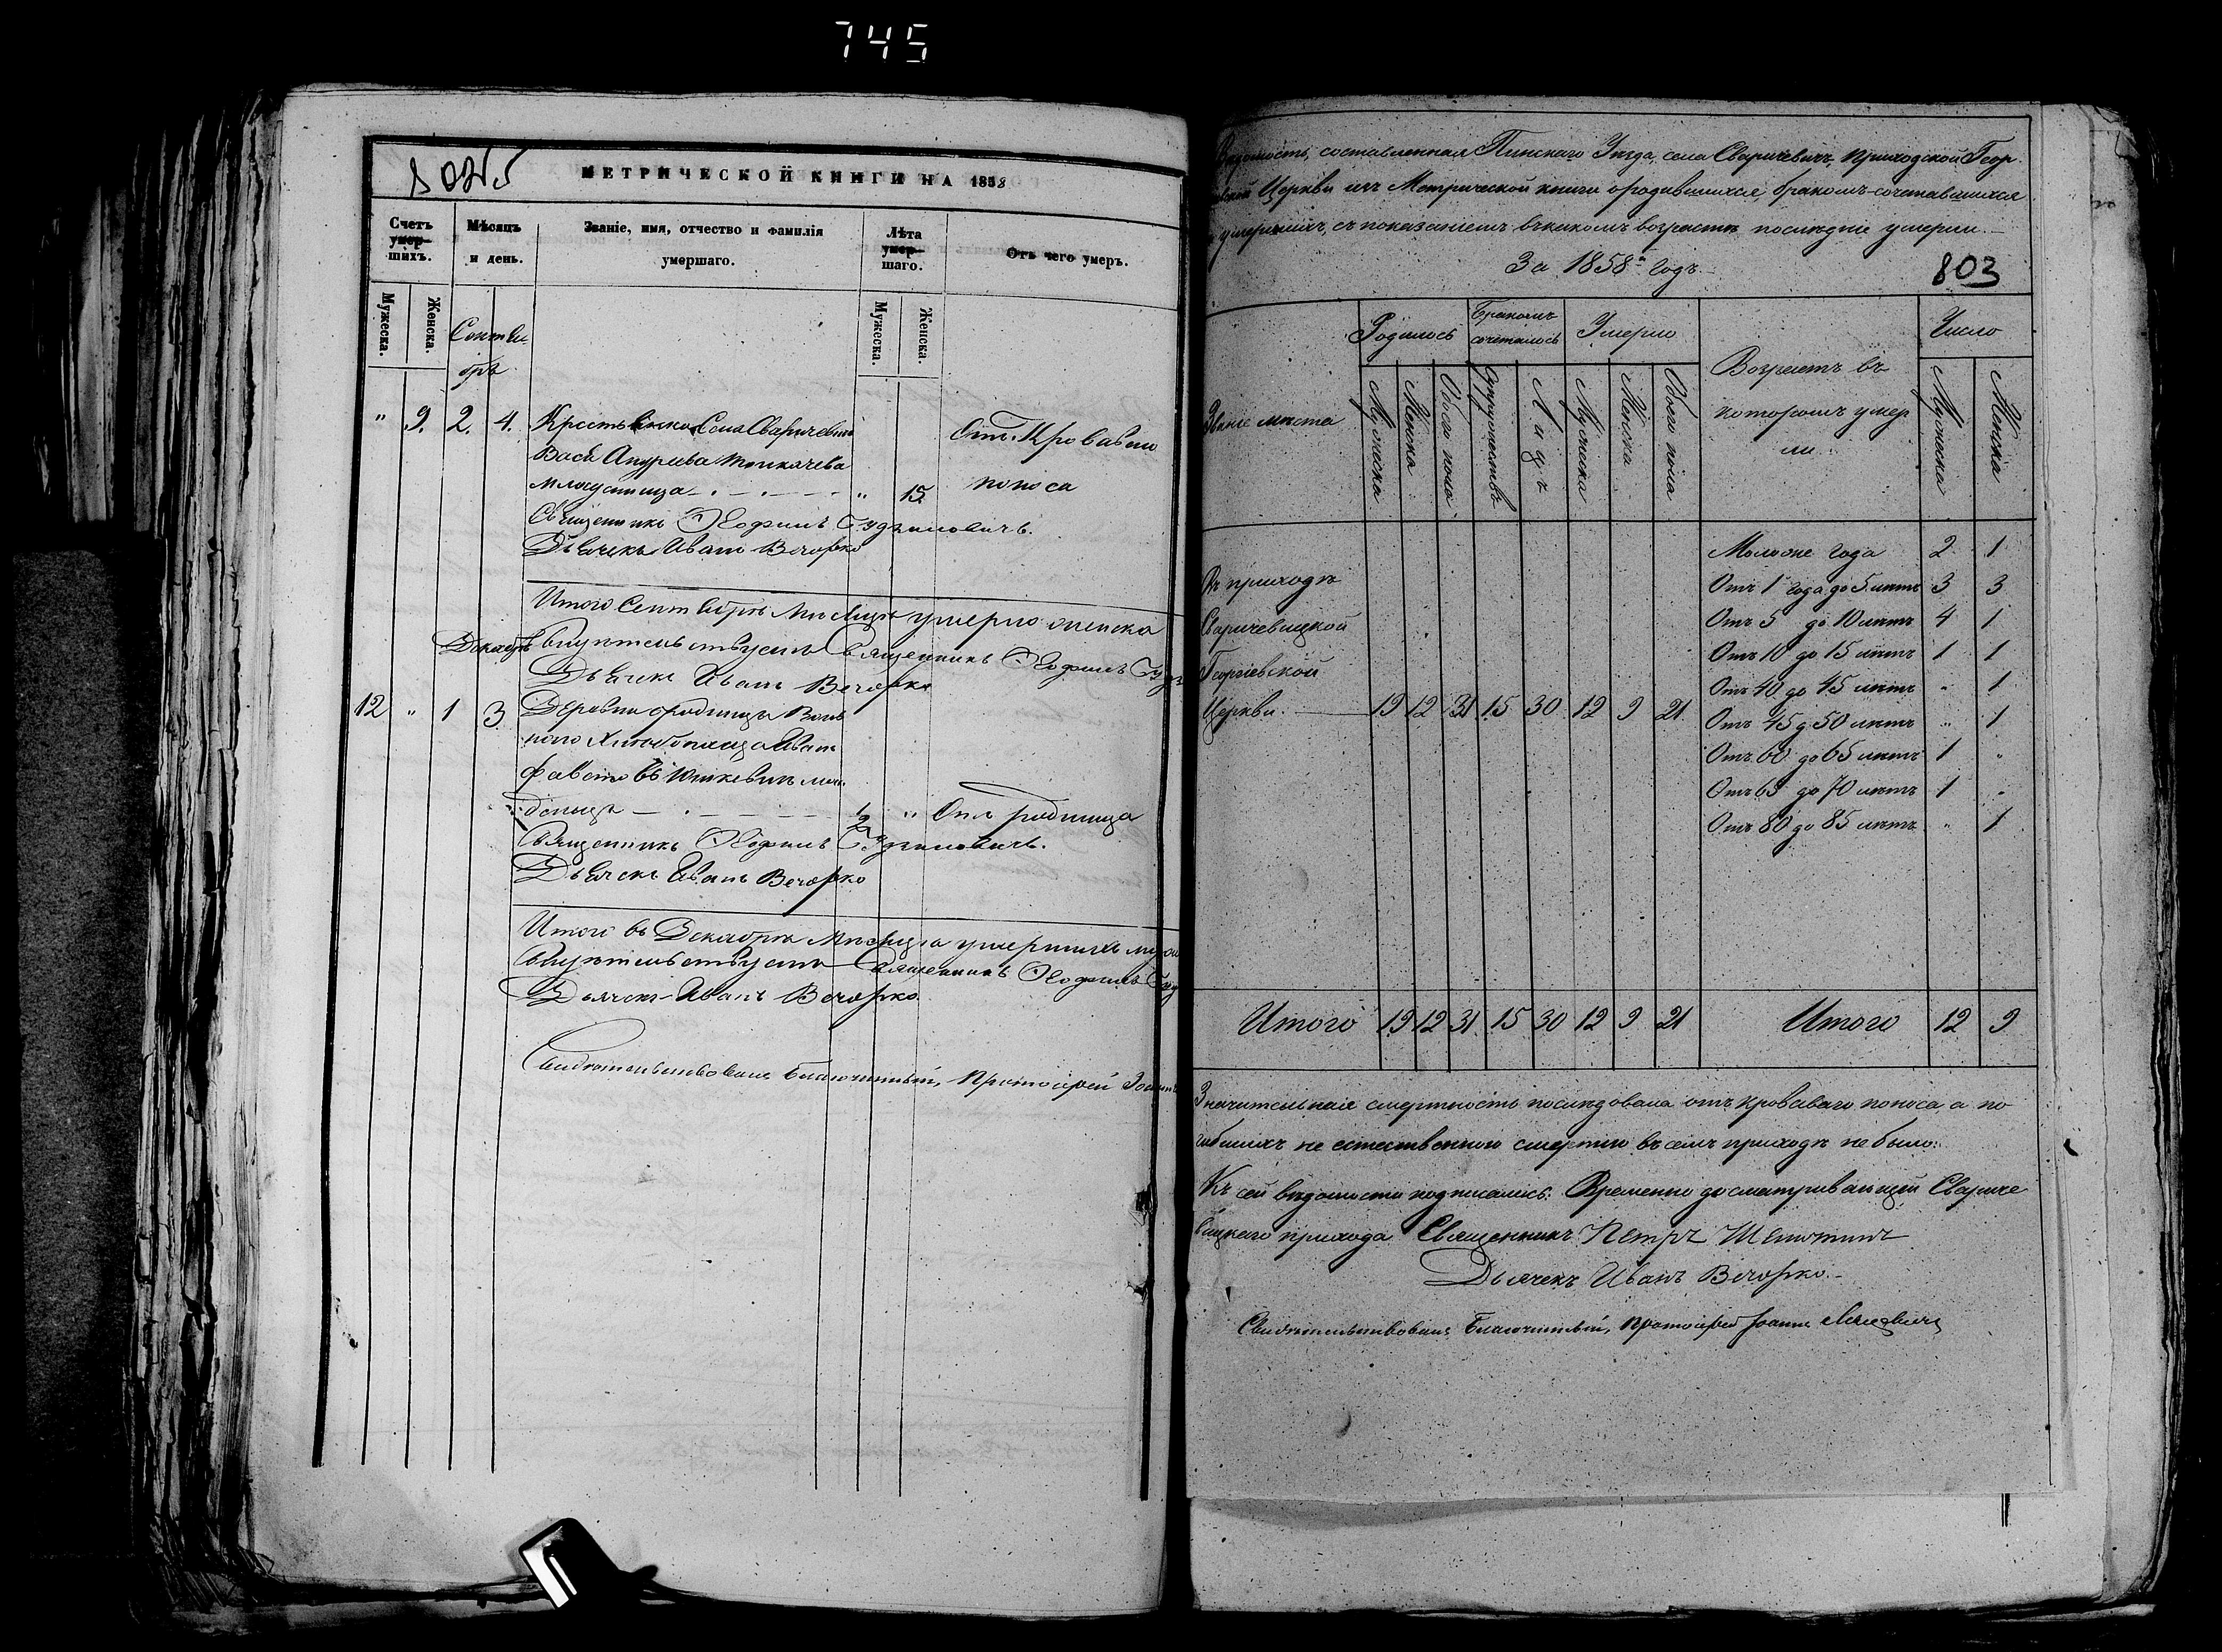 745
МЕТРИЧЕСКОЙ КНИГИ НА 1858
Счетъ умерших.
Мѣсяцъ и день.
Званіе, имя, отчество и фамилія умершаго.
Лѣта умершаго.
Отъ чего умеръ.
Мужеска.
Женска.
Мужеска.
Женска.
Сентя-
брь
" 9. 2. 4. Крестьянка Села Сваричевичъ
Андреева Толкачева
" 15. Отъ Кроваваго
поноса
Священникъ Ѳеофилъ
Дьячекъ Иванъ Вечорко
Итого Сентября Мѣсяца умерло женска
Декабрь
Священникъ Ѳеофилъ
Дьячекъ Иванъ Вечорко
12 " 1 3. Деревни
Иванъ
Юшкевичъ мла-
денецъ 1/2 " Отъ родимца
Священникъ Ѳеофилъ
Дьячекъ Иванъ Вечорко
Итого въ Декабрѣ Мѣсяцѣ умершихъ
Священникъ Ѳеофилъ
Дьячекъ Иванъ Вечорко
Свидѣтельствовалъ Благочинный, Протоіерей
Вѣдомость, составленная Пинскаго Уѣзда, села Сваричевичъ, Приходской Геор-
Церкви изъ Метрической книги о родившихся, бракомъ-сочетавшихся
умершихъ, съ показаніемъ въ какомъ возрастѣ послѣдніе умерли.
За 1858й Годъ.
803
Званіе мѣста
Родилось
Бракомъ сочеталось
Умерло
Возрастъ въ
которомъ умер
ли.
Число
Мужеска
Женска
Обоего пола
Супружествъ
Лицъ
Мужеска
Женска
Обоего пола
Мужеска
Женска
Моложе года 2 1
Въ приходѣ
Отъ 1 года до 5 лѣтъ 3 3
Сваричевицкой
Отъ 5 до 10 лѣтъ 4 1
Отъ 10 до 15 лѣтъ 1 1
Георгіевской
Отъ 40 до 45 лѣтъ " 1
Церкви. 19 12 31 15 30 12 9 21
Отъ 45 до 50 лѣтъ " 1
Отъ 60 до 65 лѣтъ 1 "
Отъ 65 до 70 лѣтъ 1 "
Отъ 80 до 85 лѣтъ " 1
Итого 19 12 31 15 30 12 9 21 Итого 12 9
Значительная смертность послѣдовала отъ кроваваго поноса, а по
гибшихъ не естественною смертію въ семъ приходѣ не было.
Къ сей вѣдомости подписались: Временно досматривающій Свариче
вицкаго прихода Священникъ Петръ
Дьячекъ Иванъ Вечорко.
Свидѣтельствовалъ Благочинный, Протоіерей Іоаннъ